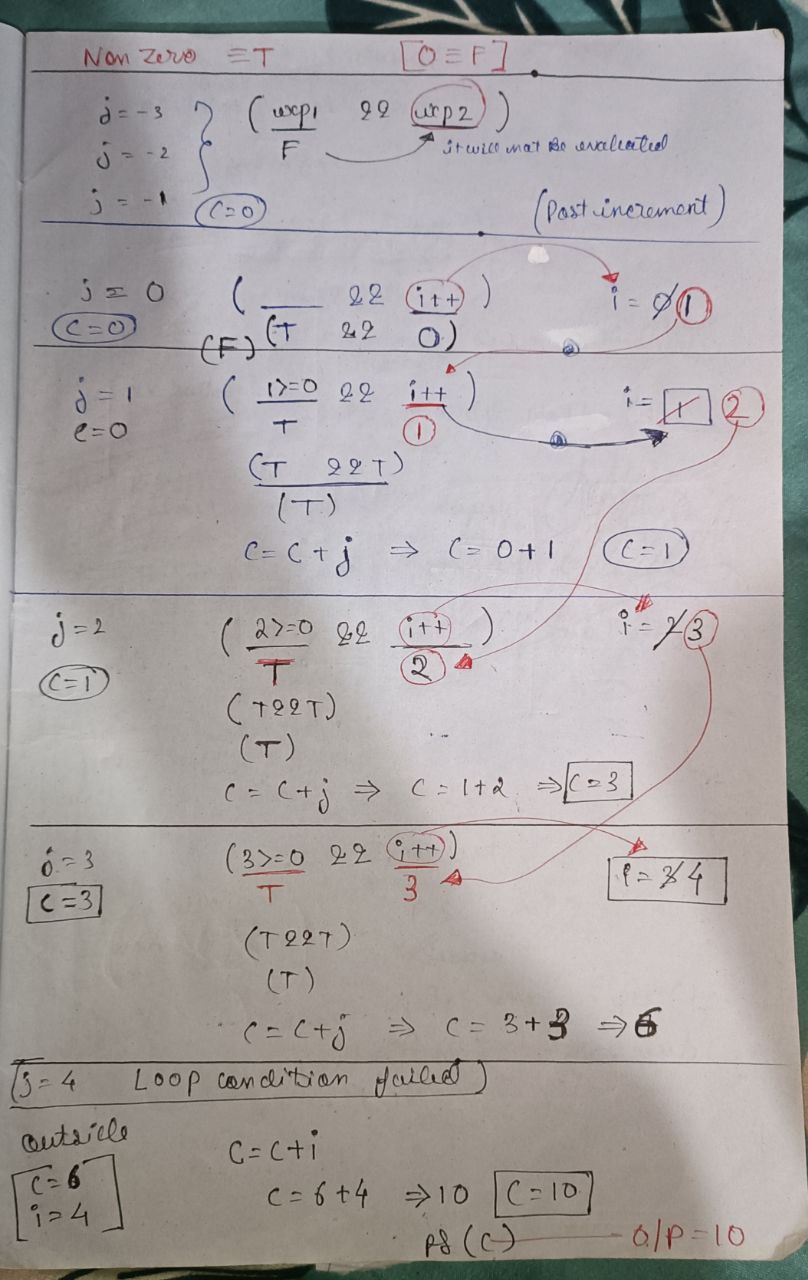 Non Zero ≡ T [0 ≡ F]
j = -3 ( exp1 && exp2 )
j = -2 F it will not be evaluated
j = -1 C=0 (Post increment)
j = 0 ( __ && i++ ) i = 0 1
C=0 (F) (T && 0)
j = 1 ( 1>=0 && i++ ) i = 1 2
c=0 T 1
(T && T)
(T)
C = C + j ⇒ C = 0+1 C=1
j=2 ( 2>=0 && i++ ) i = 2 3
C=1 T 2
(T && T)
(T)
C = C+j ⇒ C = 1+2 ⇒ C=3
j = 3 (3>=0 && i++) i = 3 4
C=3 T 3
(T && T)
(T)
C = C+j ⇒ C = 3+3 ⇒ 6
(j=4 Loop condition failed)
outside C = C+i
C=6 C = 6+4 ⇒ 10 C=10
i=4
pf (C) O/P = 10